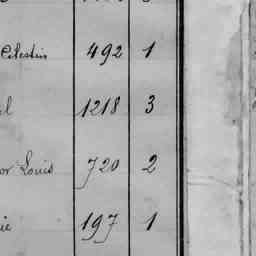 Célestin 492 1
el 1218 3
or Louis 720 2
ie 197 1